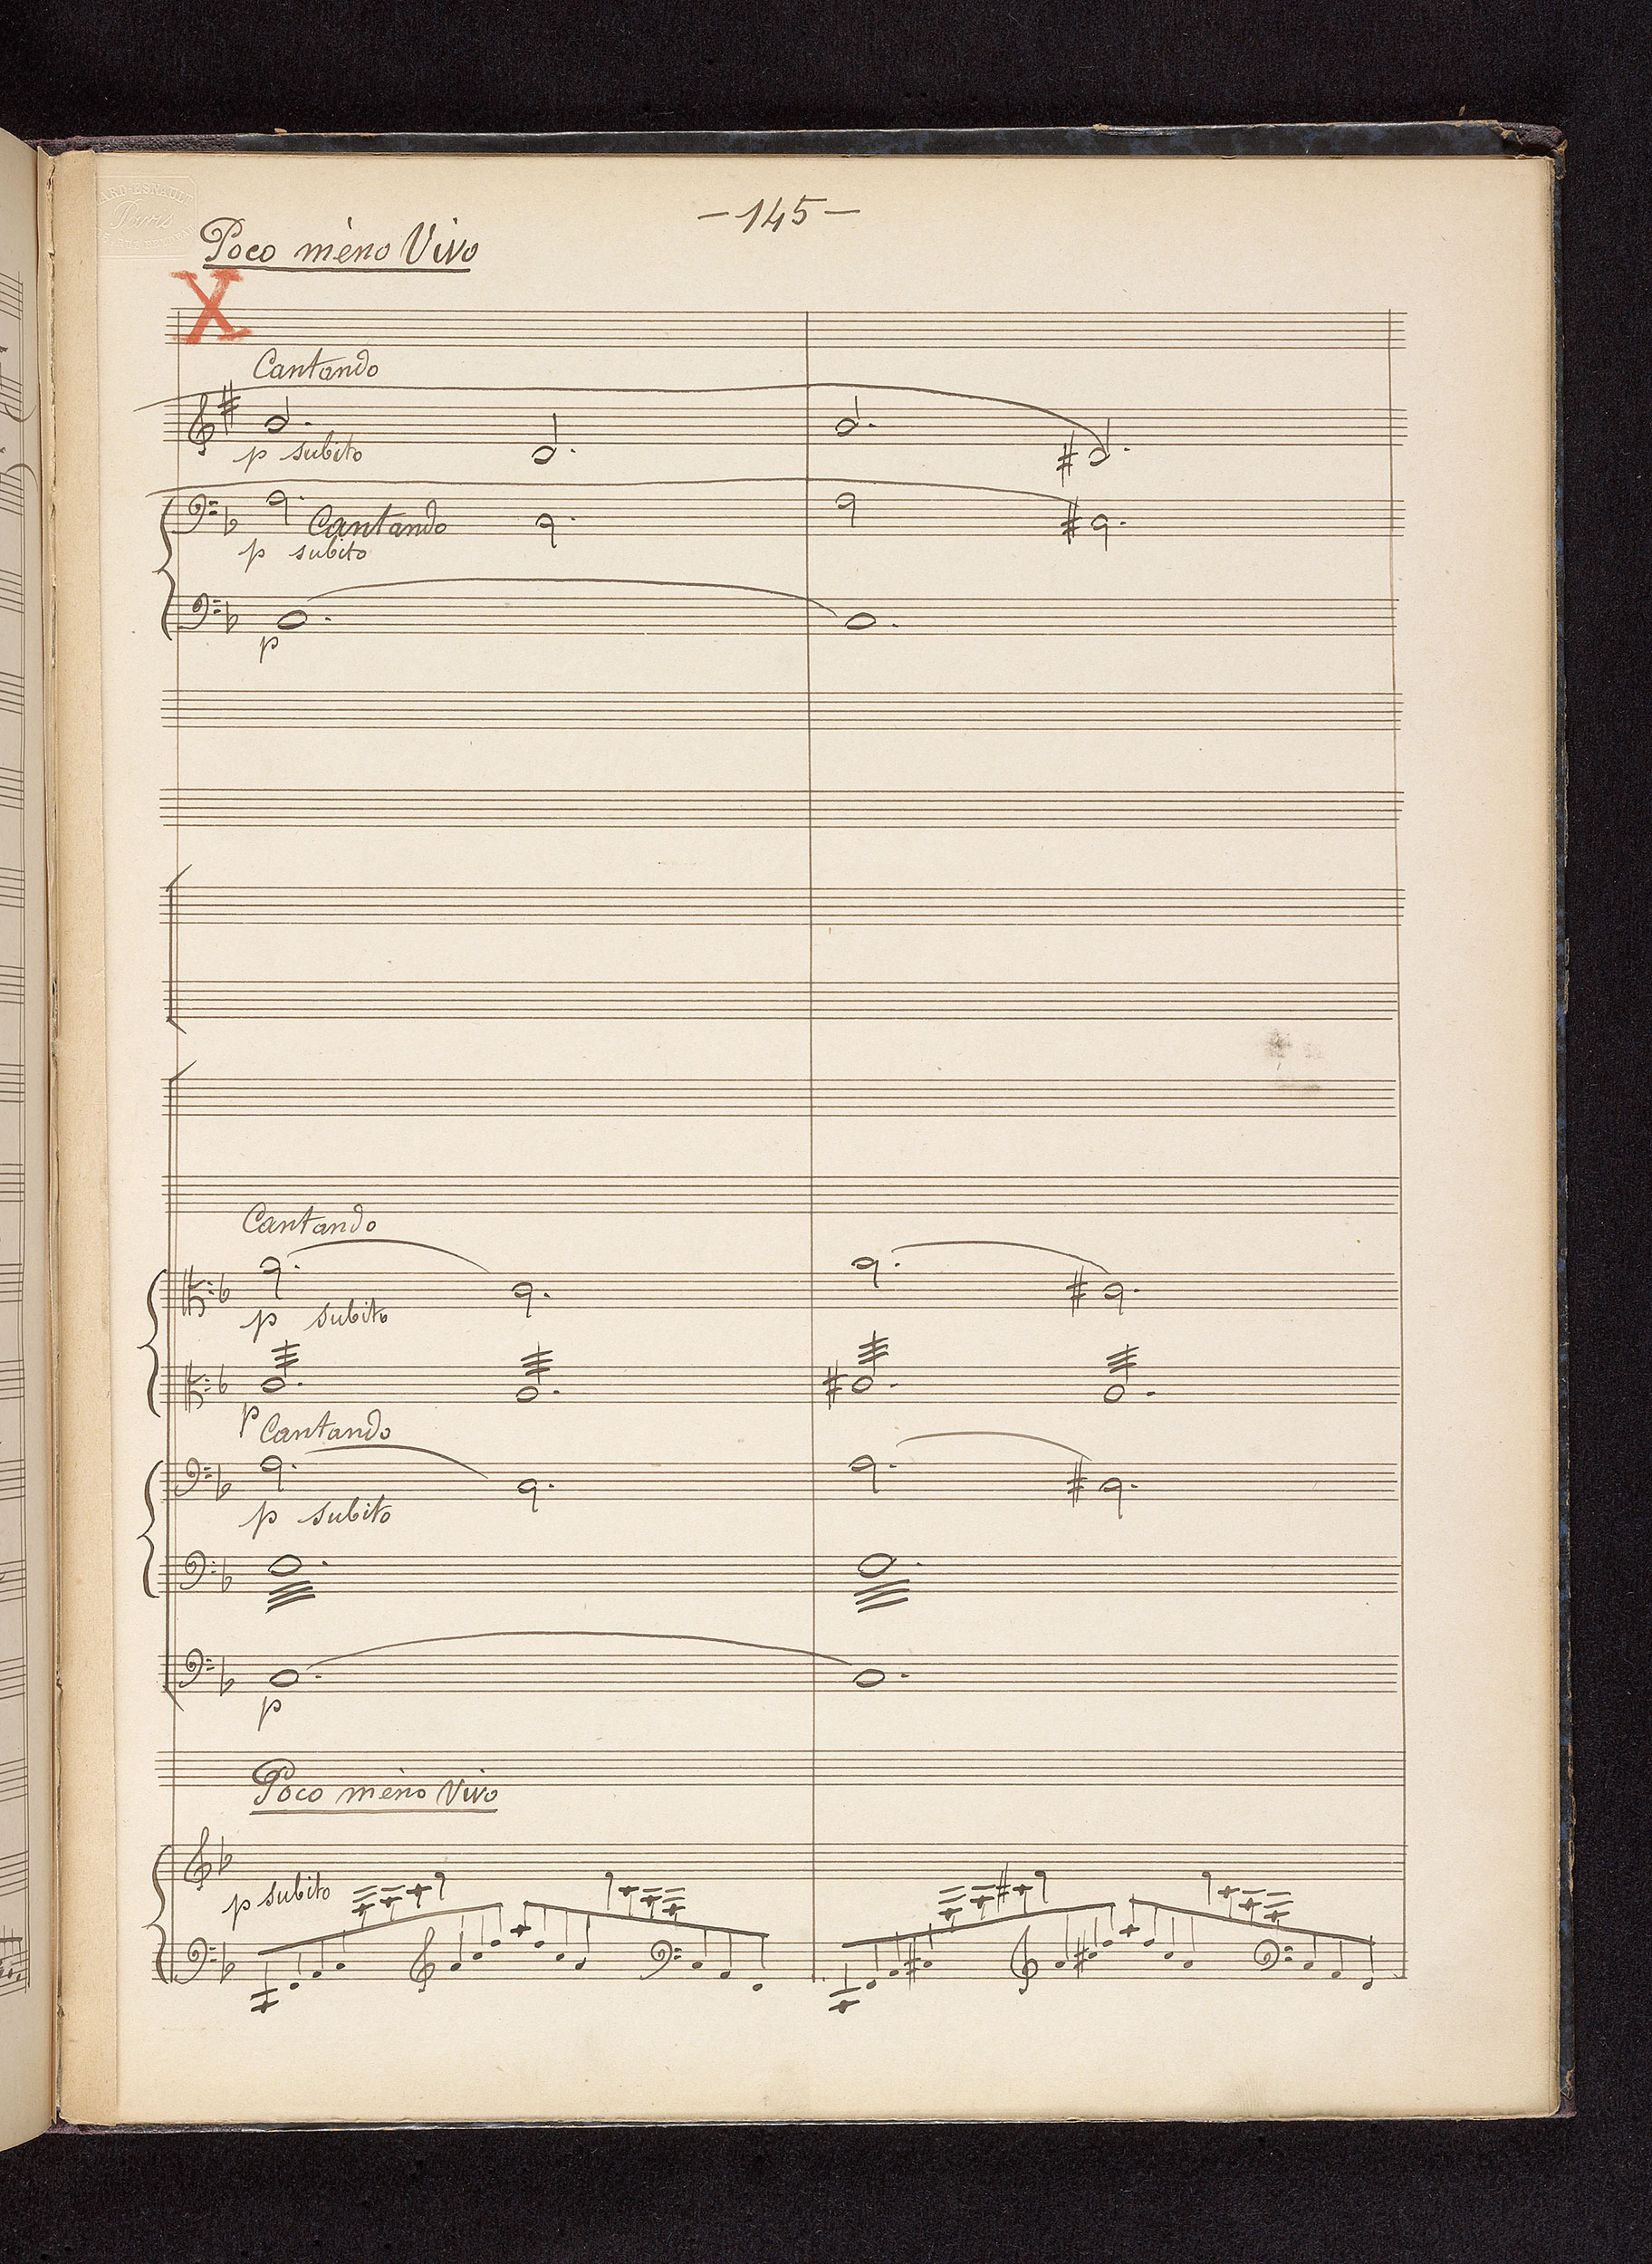 ARD-ESNAULT
Paris
- 145 -
Poco mèno Vivo
X
Cantando
p subito
Cantando
p subito
p
Cantando
p subito
p
Cantando
p subito
p
Poco mèno Vivo
p subito